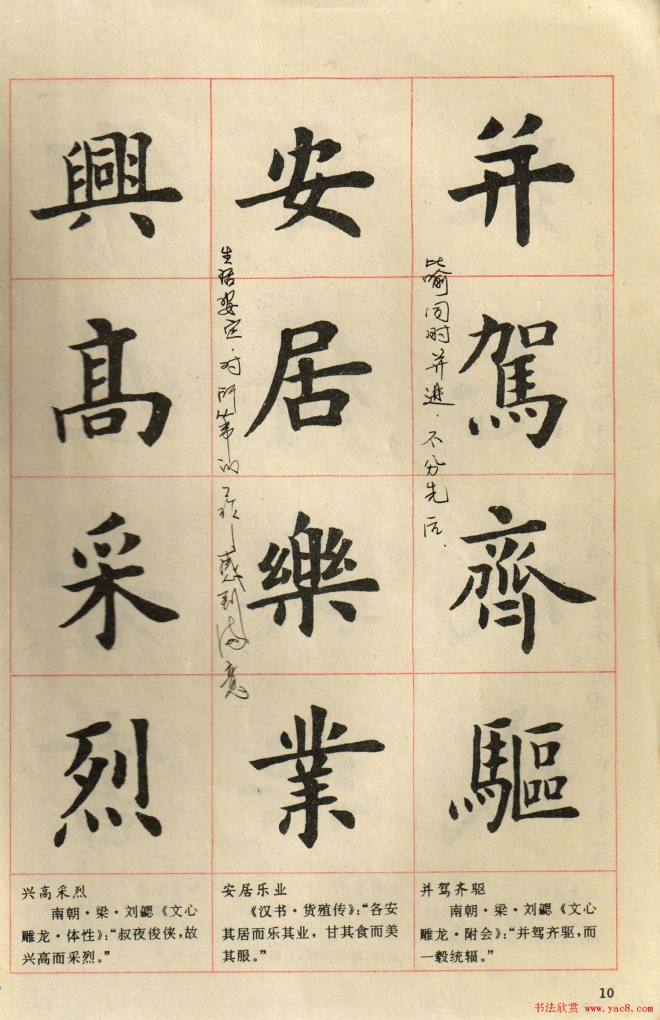 并駕齊驅
比喻同时并进.不分先后.
安居樂業
生活安定.对所从事的工作感到满意
興高采烈
并驾齐驱
南朝·梁·刘勰《文心
雕龙·附会》：“并驾齐驱，而
一毂统辐。”
安居乐业
《汉书·货殖传》：“各安
其居而乐其业，甘其食而美
其服。”
兴高采烈
南朝·梁·刘勰《文心
雕龙·体性》：“叔夜俊侠，故
兴高而采烈。”
10
书法欣赏 www.yac8.com